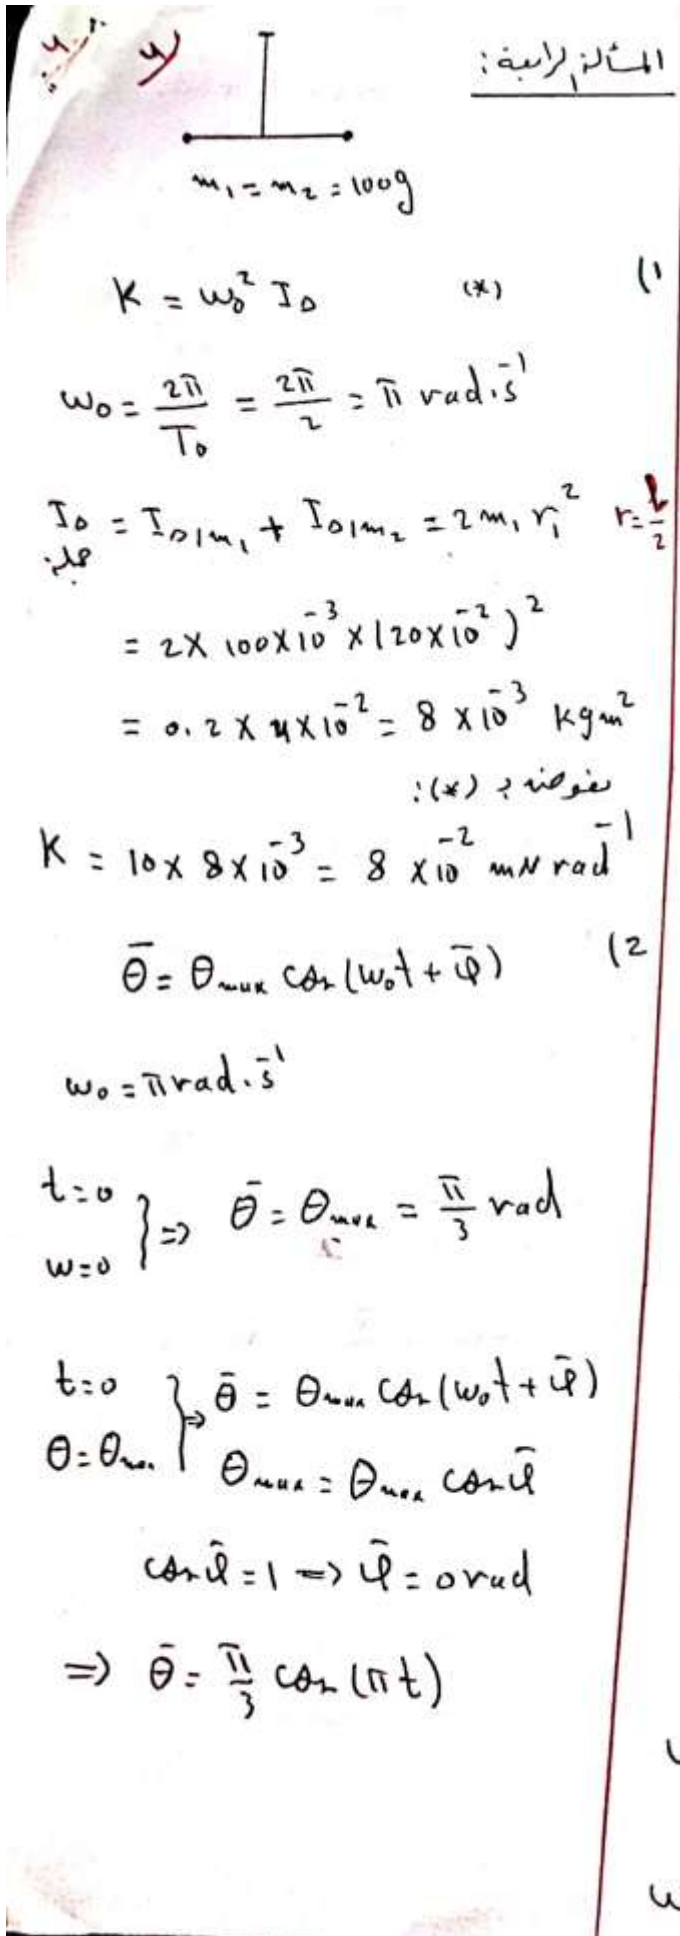 المسألة الرابعة:
m₁ = m₂ = 100g
1)
K = ω₀² I_Δ (*)
ω₀ = 2π/T₀ = 2π/2 = π rad.s⁻¹
I_Δ جملة = I_Δ/m₁ + I_Δ/m₂ = 2 m₁ r₁² r = l/2
= 2 × 100 × 10⁻³ × (20 × 10⁻²)²
= 0.2 × 4 × 10⁻² = 8 × 10⁻³ kg m²
نعوض في (*):
K = 10 × 8 × 10⁻³ = 8 × 10⁻² mN rad⁻¹
2)
θ̄ = θmax cos(ω₀t + φ̄)
ω₀ = π rad.s⁻¹
t=0
ω=0 } ⇒ θ̄ = θmax = π/3 rad
t=0
θ=θmax } ⇒ θ̄ = θmax cos(ω₀t + φ̄)
θmax = θmax cos φ̄
cos φ̄ = 1 ⇒ φ̄ = 0 rad
⇒ θ̄ = π/3 cos(πt)